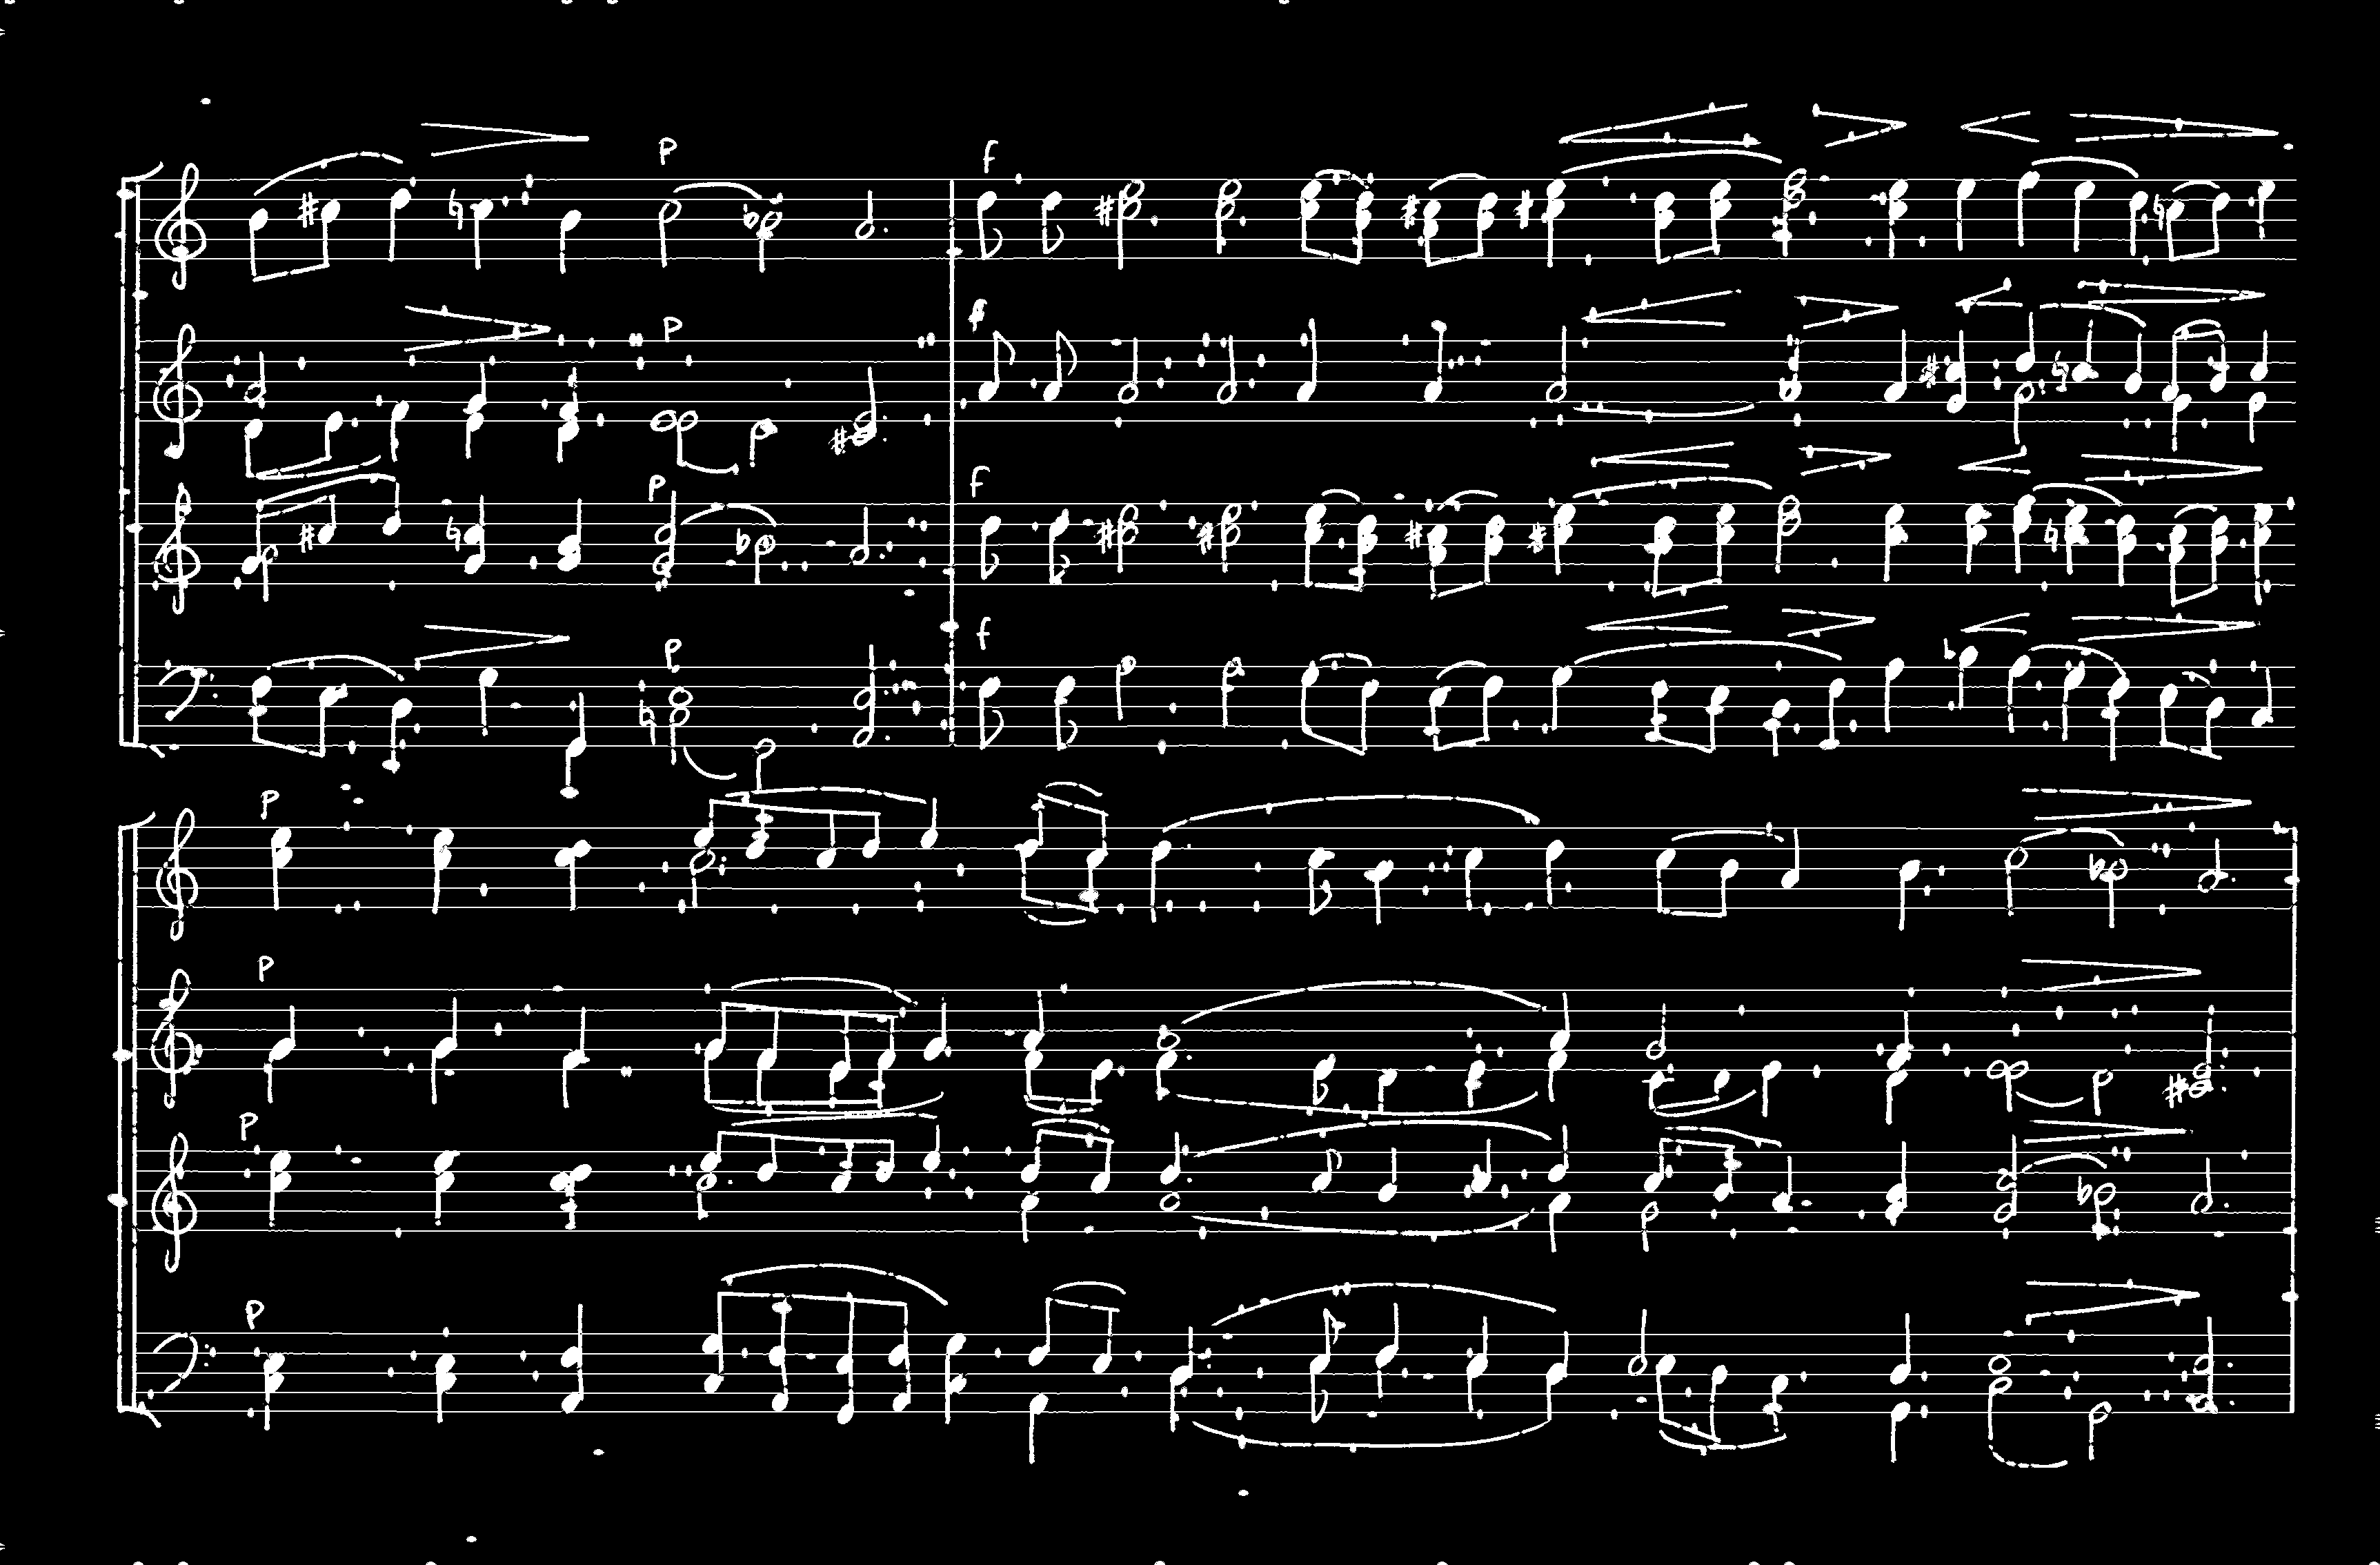 p f
f p
p f
p f
p
p
p
p